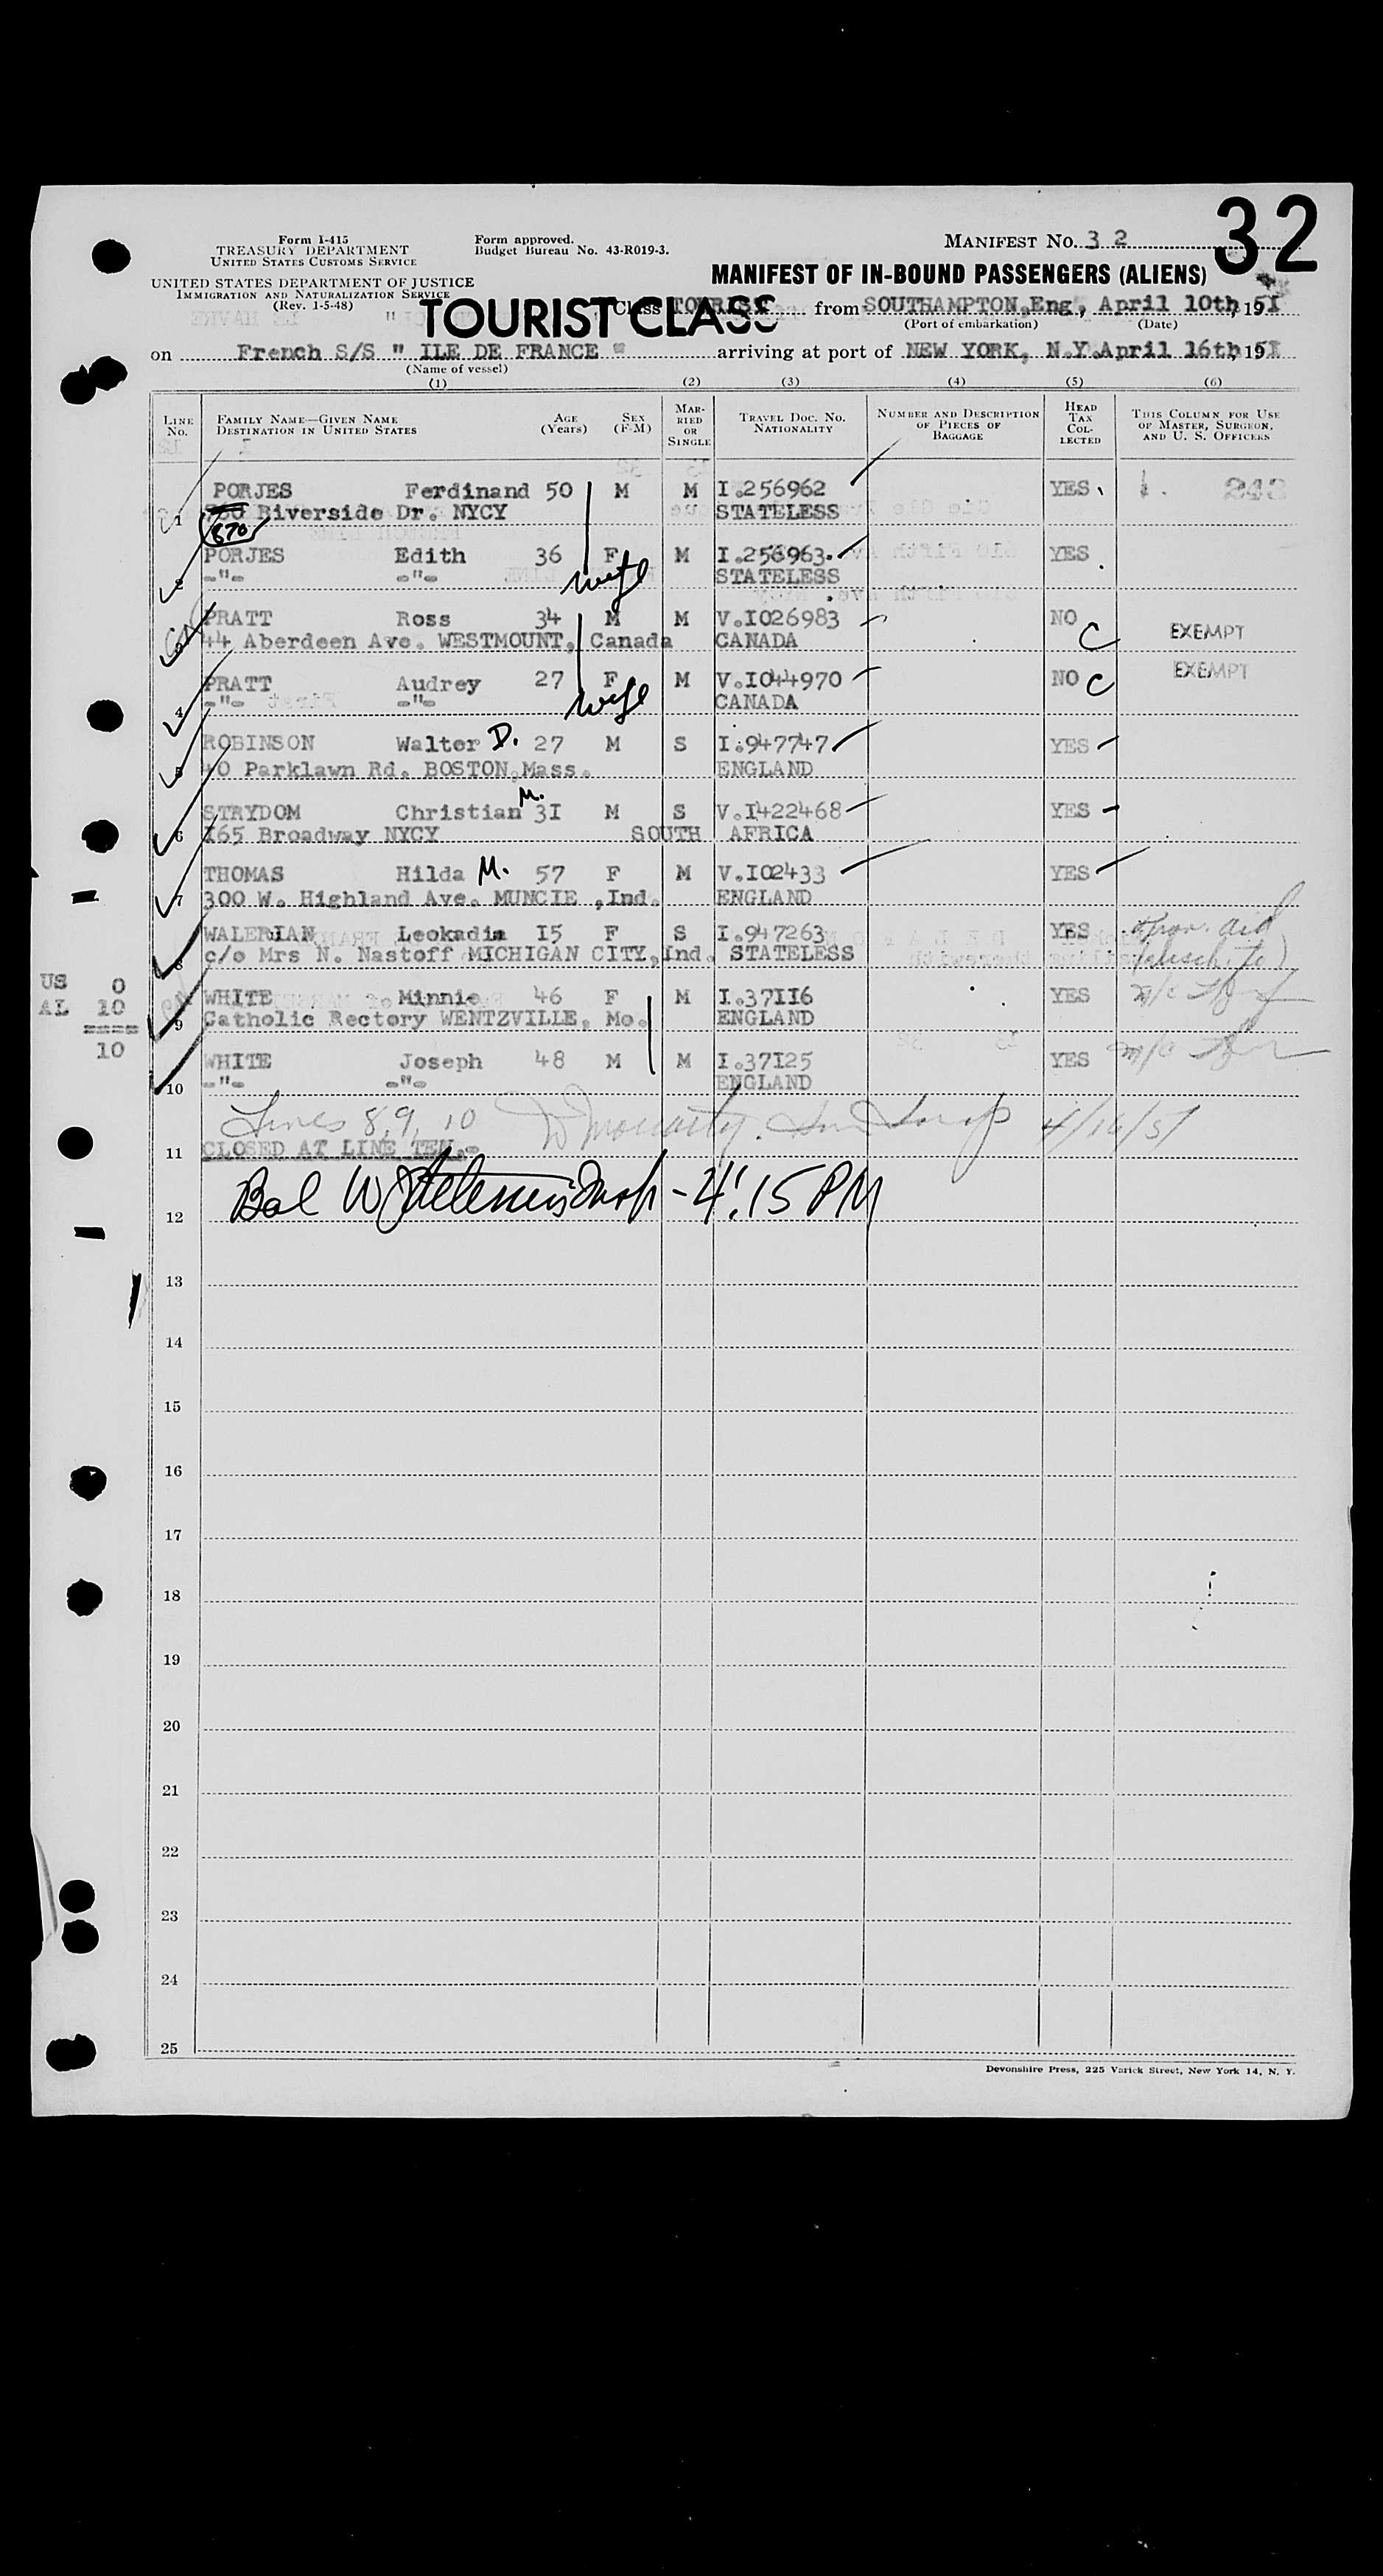 32
Form I-415
TREASURY DEPARTMENT
UNITED STATES CUSTOMS SERVICE
Form approved.
Budget Bureau No. 43-R019-3.
MANIFEST NO. 32
UNITED STATES DEPARTMENT OF JUSTICE
IMMIGRATION AND NATURALIZATION SERVICE
(Rev. 1-5-48)
MANIFEST OF IN-BOUND PASSENGERS (ALIENS)
TOURIST CLASS
Class TOURIST from SOUTHAMPTON,Eng, April 10th, 195I
(Port of embarkation) (Date)
on French S/S " ILE DE FRANCE " arriving at port of NEW YORK, N.Y. April 16th, 195I
(Name of vessel)
(1) (2) (3) (4) (5) (6)
LINE NO. FAMILY NAME—GIVEN NAME DESTINATION IN UNITED STATES AGE (Years) SEX (F-M) MARRIED OR SINGLE TRAVEL DOC. NO. NATIONALITY NUMBER AND DESCRIPTION OF PIECES OF BAGGAGE HEAD TAX COLLECTED THIS COLUMN FOR USE OF MASTER, SURGEON, AND U. S. OFFICERS
PORJES Ferdinand 50 M M I.256962 YES 243
1 870 Riverside Dr. NYCY STATELESS
PORJES Edith 36 F M I.256963. YES
2 -"- -"- wife STATELESS
PRATT Ross 34 M M V.I026983 NO C EXEMPT
3 44 Aberdeen Ave. WESTMOUNT, Canada CANADA
PRATT Audrey 27 F M V.I044970 NO C EXEMPT
4 -"- -"- wife CANADA
ROBINSON Walter D. 27 M S I.947747 YES
5 40 Parklawn Rd. BOSTON,Mass. ENGLAND
STRYDOM Christian M. 3I M S V.I422468 YES
6 I65 Broadway NYCY SOUTH AFRICA
THOMAS Hilda M. 57 F M V.I02433 YES
7 300 W. Highland Ave. MUNCIE ,Ind. ENGLAND
WALERIAN Leokadia I5 F S I.947263 YES
8 c/o Mrs N. Nastoff MICHIGAN CITY,Ind. STATELESS
WHITE Minnie 46 F M I.37II6 YES
9 Catholic Rectory WENTZVILLE, Mo. ENGLAND
WHITE Joseph 48 M M I.37I25 YES
10 -"- -"- ENGLAND
US 0
AL 10
====
10
Lines 8, 9, 10 4/16/51
11 CLOSED AT LINE TEN.-
12 Bal 4:15 PM
13
14
15
16
17
18
19
20
21
22
23
24
25
Devonshire Press, 225 Varick Street, New York 14, N. Y.